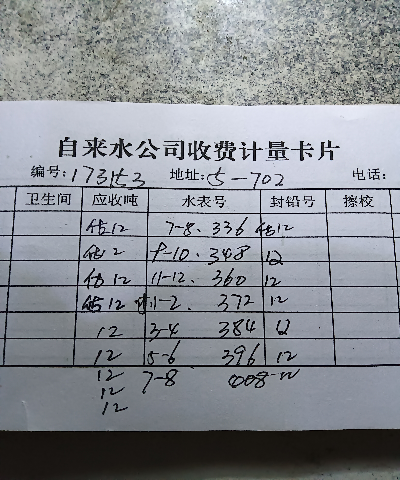 自来水公司收费计量卡片
编号: 173153 地址: 5-702 电话:
卫生间 应收吨 水表号 封铅号 擦校
估12 7-8. 336 估12
估2 9-10. 348 12
估12 11-12. 360 12
估12 1-2. 372 12
12 3-4 384 12
12 5-6 396 12
12 7-8 008-12
12
12